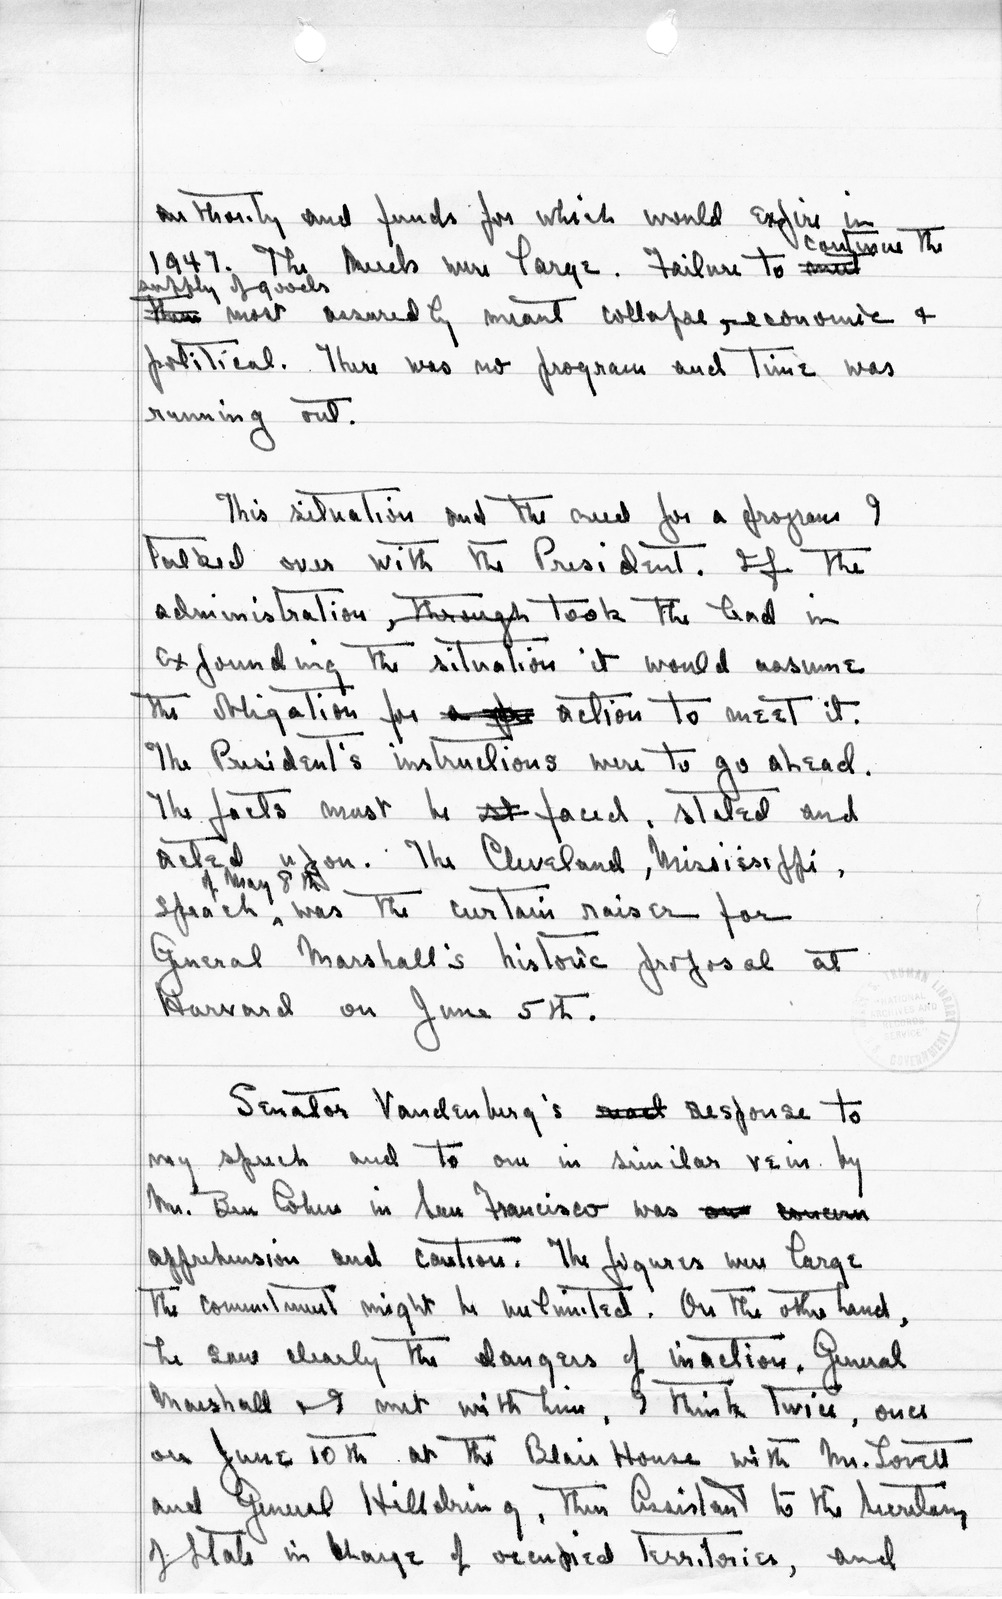 authority and funds for which would expire in
continue the
1947. The needs were large. Failure to meet
supply of goods
them most assuredly meant collapse, economic +
political. There was no program and time was
running out.
This situation and the need for a program I
talked over with the President. If the
administration, through took the lead in
expounding the situation it would assume
the obligation for a pro action to meet it.
The President's instructions were to go ahead.
The facts must be st faced, stated and
acted upon. The Cleveland, Mississippi,
of May 8th
speach, was the curtain raiser for
General Marshall's historic proposal at
Harvard on June 5th.
HARRY S. TRUMAN LIBRARY
NATIONAL
ARCHIVES AND
RECORDS
SERVICE
U.S. GOVERNMENT
Senator Vandenberg's response to
my speech and to one in similar vein by
Mr. Ben Cohen in San Francisco was one concern
apprehension and caution. The figures were large
the commitment might be unlimited. On the other hand,
he saw clearly the dangers of inaction. General
Marshall & I met with him, I think twice, once
on June 10th at the Blair House with Mr. Lovett
and General Hilldring, then Assistant to the Secretary
of State in charge of occupied territories, and